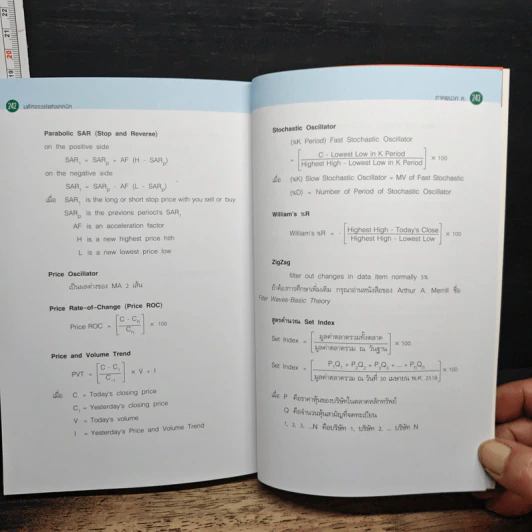 242
Parabolic SAR (Stop and Reverse)
on the positive side
SAR₁ = SARₚ + AF (H - SARₚ)
on the negative side
SAR₁ = SARₚ - AF (L - SARₚ)
เมื่อ SAR₁ is the long or short stop price with you sell or buy
SARₚ is the previons period's SAR₁
AF is an acceleration factor
H is a new highest price hith
L is a new lowest price low
Price Oscillator
เป็นผลต่างของ MA 2 เส้น
Price Rate-of-Change (Price ROC)
Price ROC = [C - Cₙ / Cₙ] × 100
Price and Volume Trend
PVT = [C - C₁ / C₁] × V + I
เมื่อ C = Today's closing price
C₁ = Yesterday's closing price
V = Today's volume
I = Yesterday's Price and Volume Trend
ภาคผนวก ค. 243
Stochastic Oscillator
(%K Period) Fast Stochastic Oscillator
= [C - Lowest Low in K Period / Highest High - Lowest Low in K Period] × 100
เมื่อ (%K) Slow Stochastic Oscillator = MV of Fast Stochastic
(%D) = Number of Period of Stochastic Oscillator
William's %R
William's %R = - [Highest High - Today's Close / Highest High - Lowest Low] × 100
ZigZag
filter out changes in data item normally 5%
ถ้าต้องการศึกษาเพิ่มเติม กรุณาอ่านหนังสือของ Arthur A. Merrill ชื่อ
Filter Waves-Basic Theory
สูตรคำนวณ Set Index
Set Index = [มูลค่าตลาดรวมทั้งตลาด / มูลค่าตลาดรวม ณ วันฐาน] × 100
Set Index = [P₁Q₁ + P₂Q₂ + P₃Q₃ + ... + PₙQₙ / มูลค่าตลาดรวม ณ วันที่ 30 เมษายน พ.ศ. 2518] × 100
เมื่อ P คือราคาหุ้นของบริษัทในตลาดหลักทรัพย์
Q คือจำนวนหุ้นสามัญที่จดทะเบียน
1, 2, 3, ...N คือบริษัท 1, บริษัท 2, ... บริษัท N
19
20
21
22